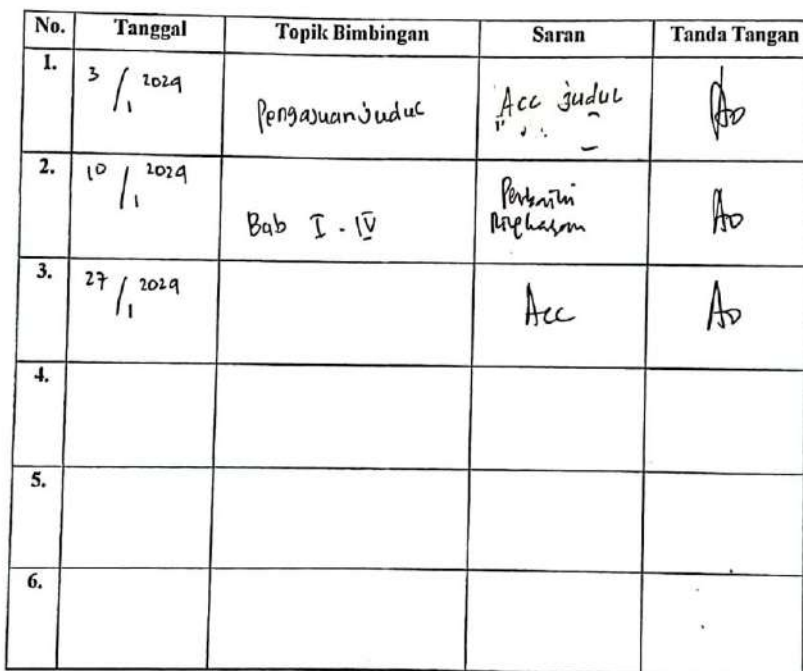 No. Tanggal Topik Bimbingan Saran Tanda Tangan
1. 3/1 2024 Pengajuan judul Acc judul
2. 10/1 2024 Bab I - IV
3. 27/1 2024 Acc
4.
5.
6.